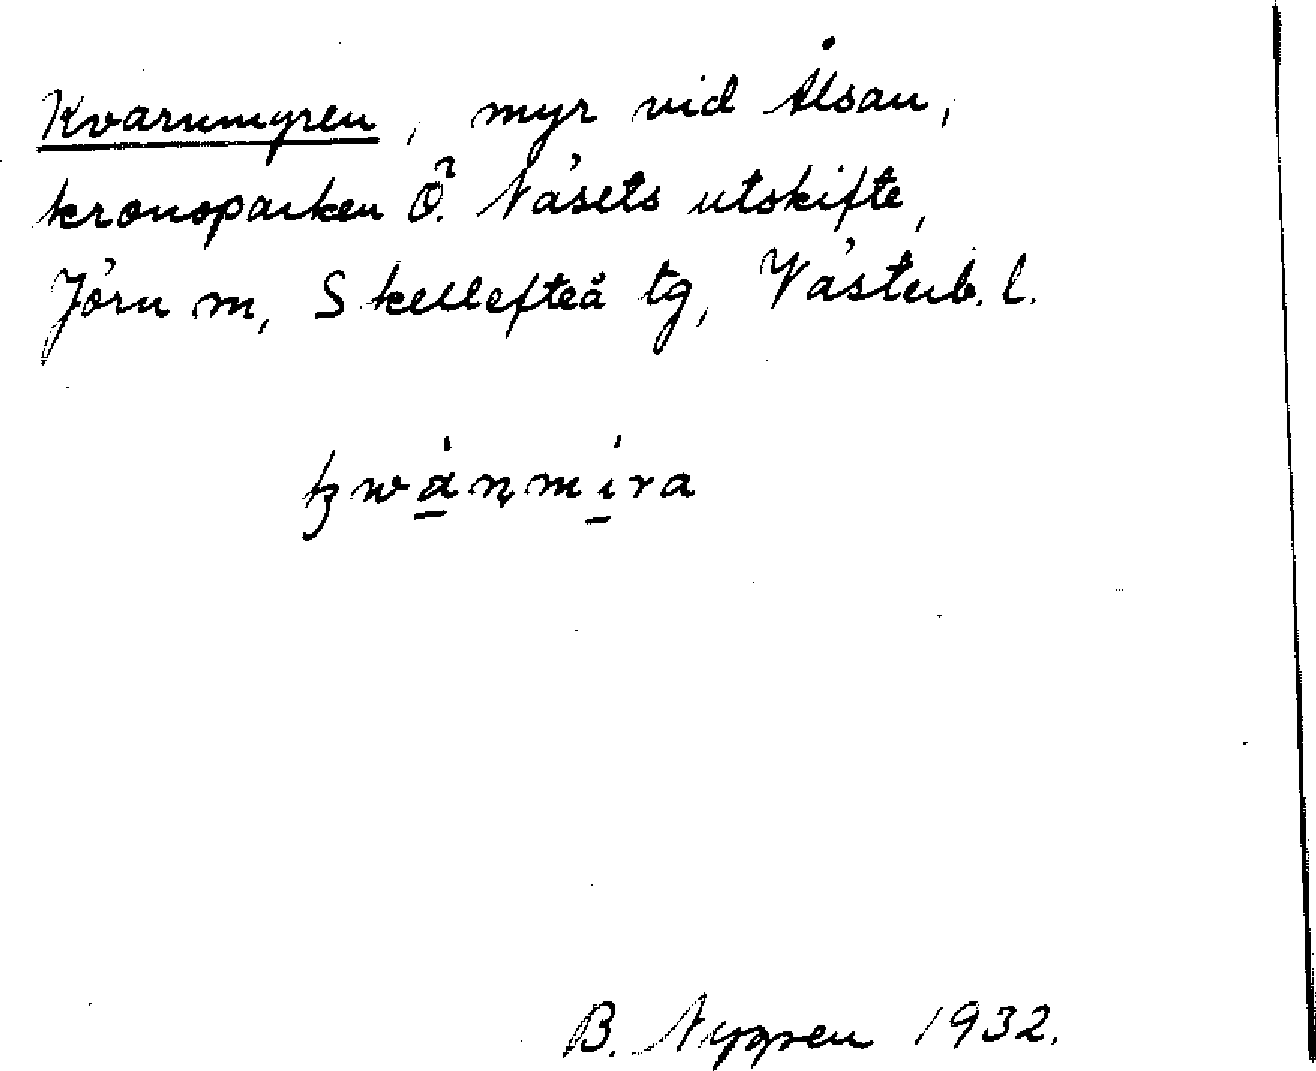 Kvarnmyren, myr vid Ålsån,
kronoparken Ö. Näsets utskifte,
Jörn sn, Skellefteå tg, Västerb. l.
ꜧwa̲̍ṇmi̲̍ra
B. Nygren 1932.